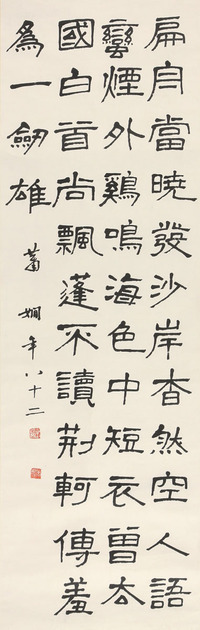 扁舟當曉發沙岸杳然空人語
蠻煙外鷄鳴海色中短衣曾去
國白首尚飄蓬不讀荆軻傳羞
爲一劒雄
蕭嫻年八十二